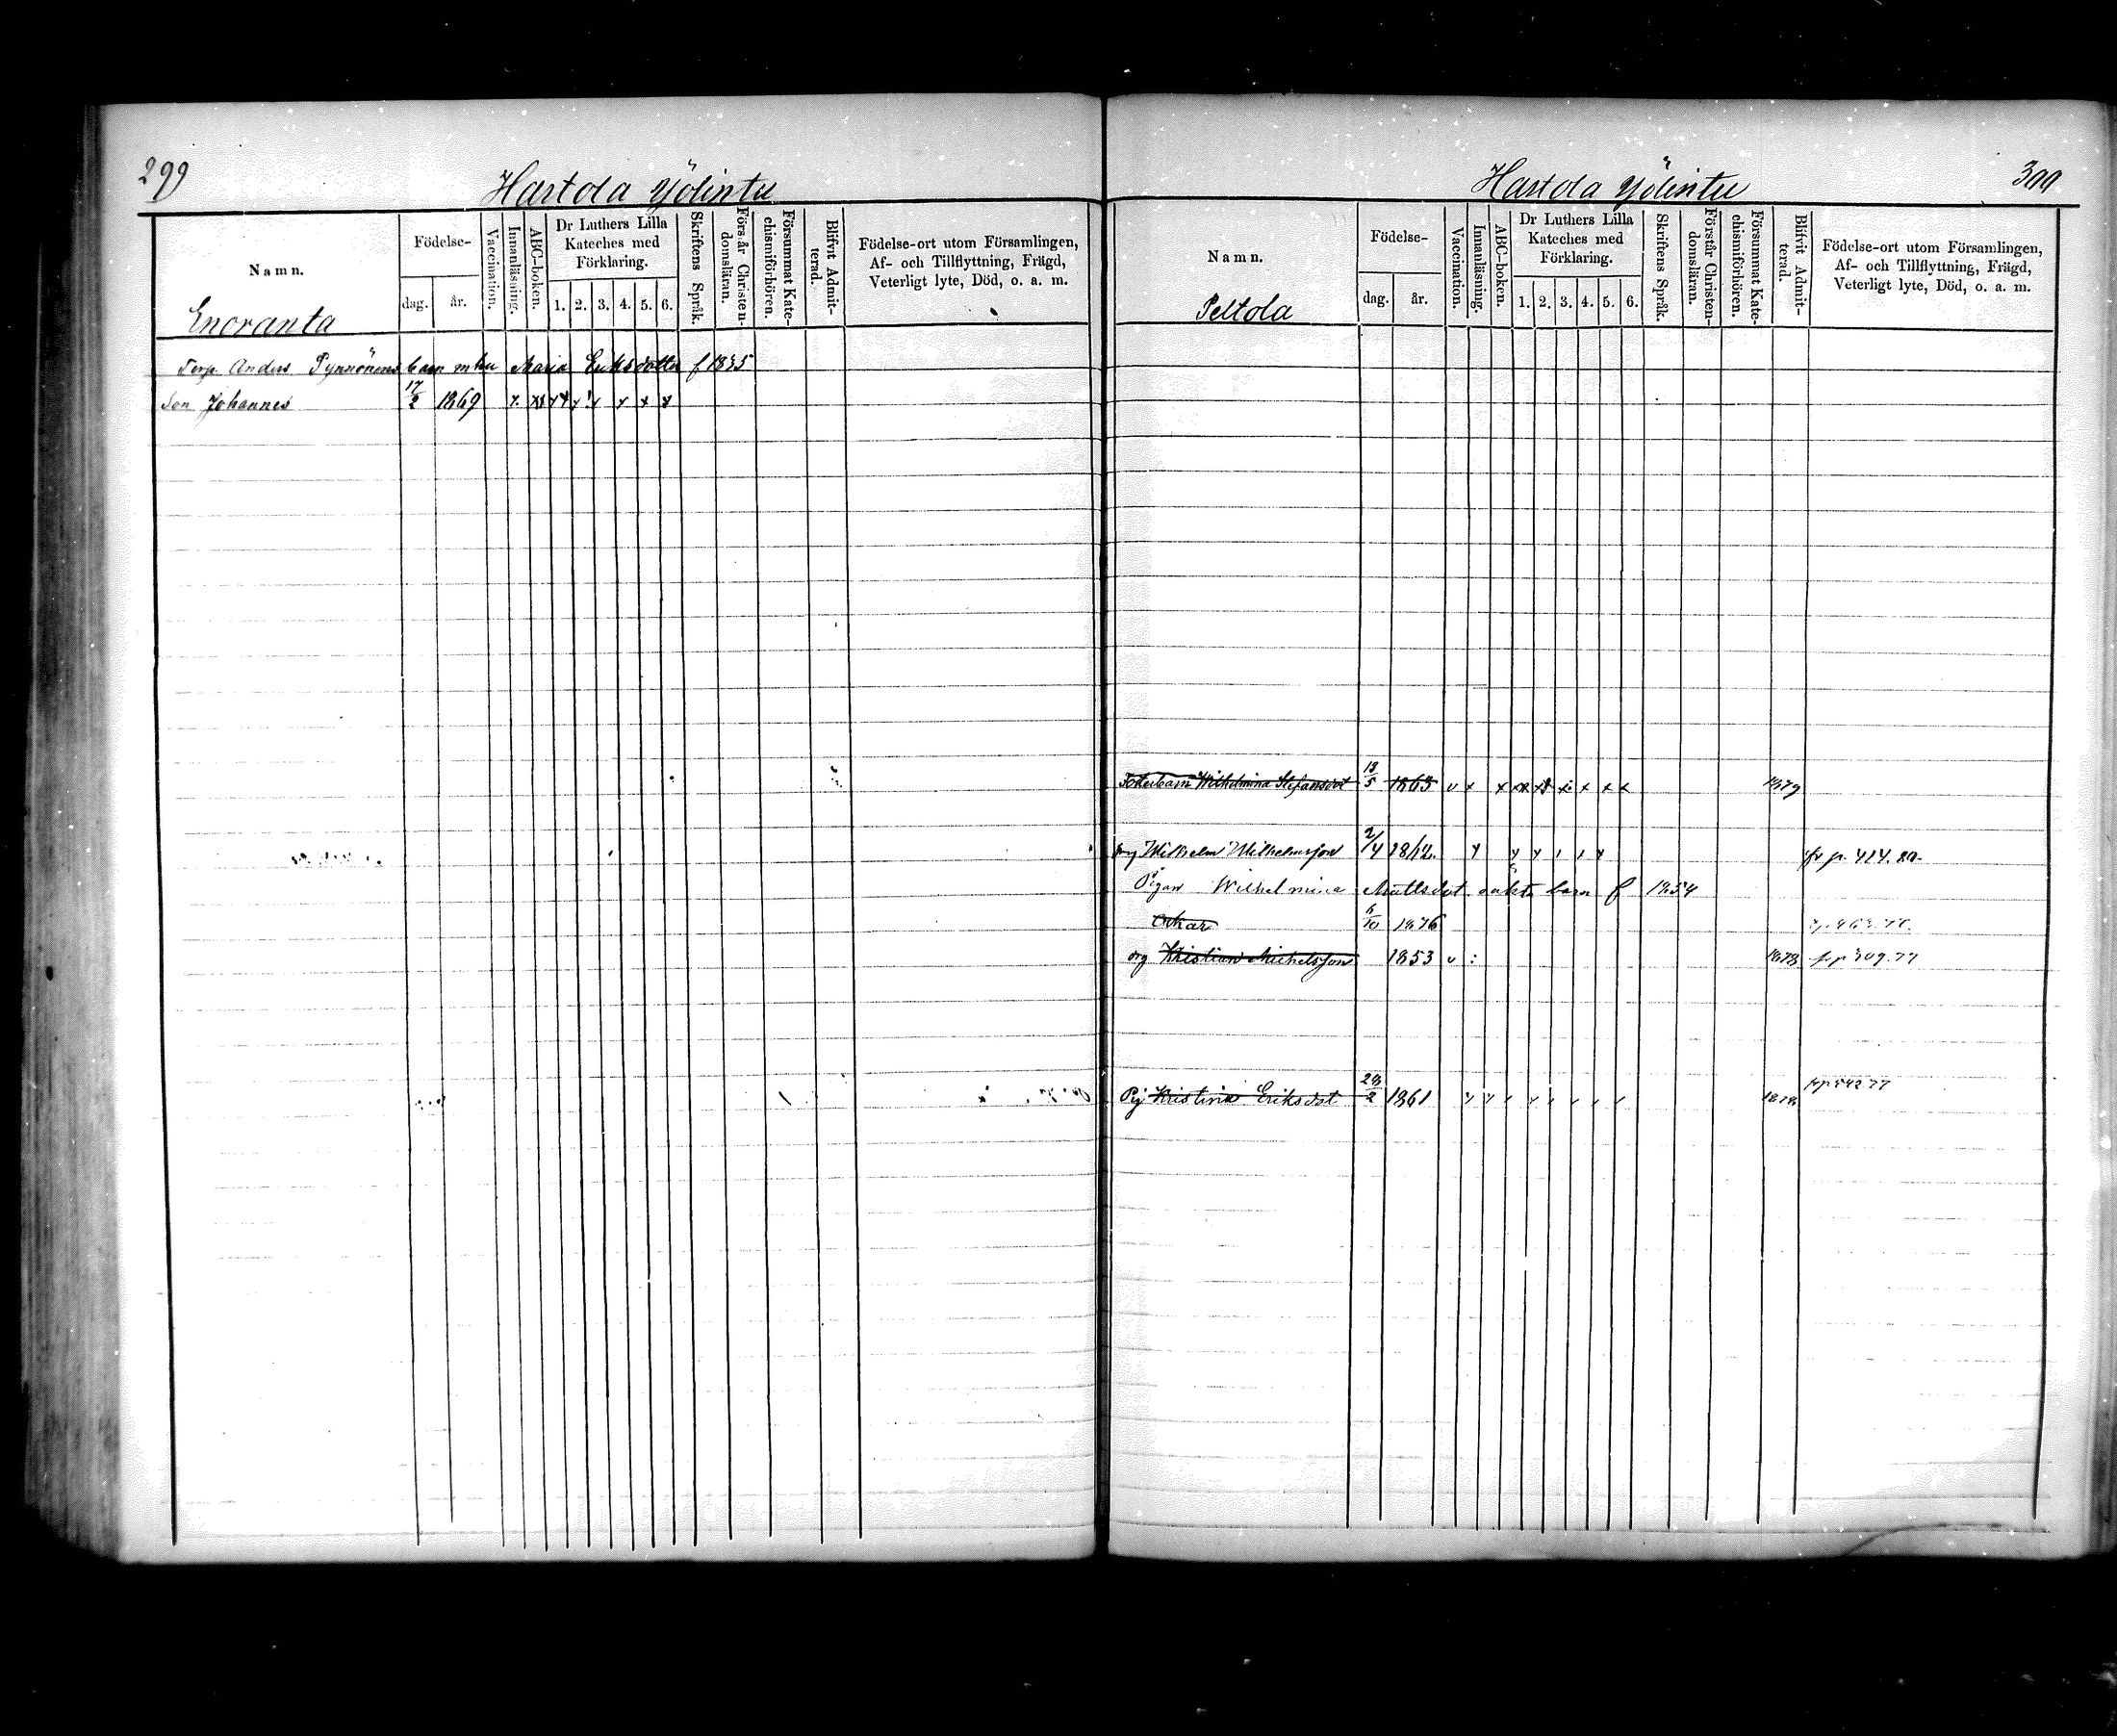 299
Hartola Yölintu
Namn.
Födelse-
dag.
år.
Vaccination.
Innanläsning.
ABC-boken.
Dr Luthers Lilla
Kateches med
Förklaring.
1. 2. 3. 4. 5. 6.
Skriftens Språk.
Förstår Christen-
domsläran.
Försummat Kate-
chismiförhören.
Blifvit Admit-
terad.
Födelse-ort utom Församlingen,
Af- och Tillflyttning, Frägd,
Veterligt lyte, Död, o. a. m.
Enoranta
Torp. Anders Pynnönens barn m hu Maria Eriksdotter f 1835
Son Johannes 17/2 1869 x x x x x x x
Hartola Yölintu
300
Namn.
Födelse-
dag.
år.
Vaccination.
Innanläsning.
ABC-boken.
Dr Luthers Lilla
Kateches med
Förklaring.
1. 2. 3. 4. 5. 6.
Skriftens Språk.
Förstår Christen-
domsläran.
Försummat Kate-
chismiförhören.
Blifvit Admit-
terad.
Födelse-ort utom Församlingen,
Af- och Tillflyttning, Frägd,
Veterligt lyte, Död, o. a. m.
Peltola
Wilhelmina Stefansdot 13/5 1863 v x x xx x x x x x 1879
Wilhelm Wilhelmsson 2/4 1862. fr p. 414.
Pigan Wilhelmina Mattsdot oäkta barn f 1854
Oskar 6/10 1876
drg Kristian Michelsson 1853 v : 1878 fr p 309.77
Pig Kristina Eriksdot 28/2 1861 1878 fr p 542 77